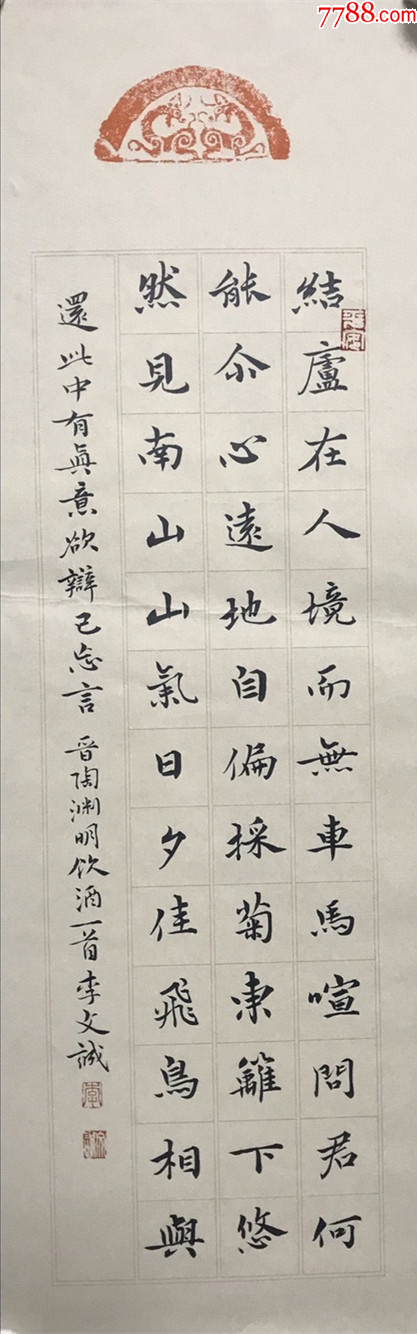 7788.com
結廬在人境而無車馬喧問君何
能尒心遠地自偏採菊東籬下悠
然見南山山氣日夕佳飛鳥相與
還此中有真意欲辯已忘言 晉陶淵明飲酒一首李文誠